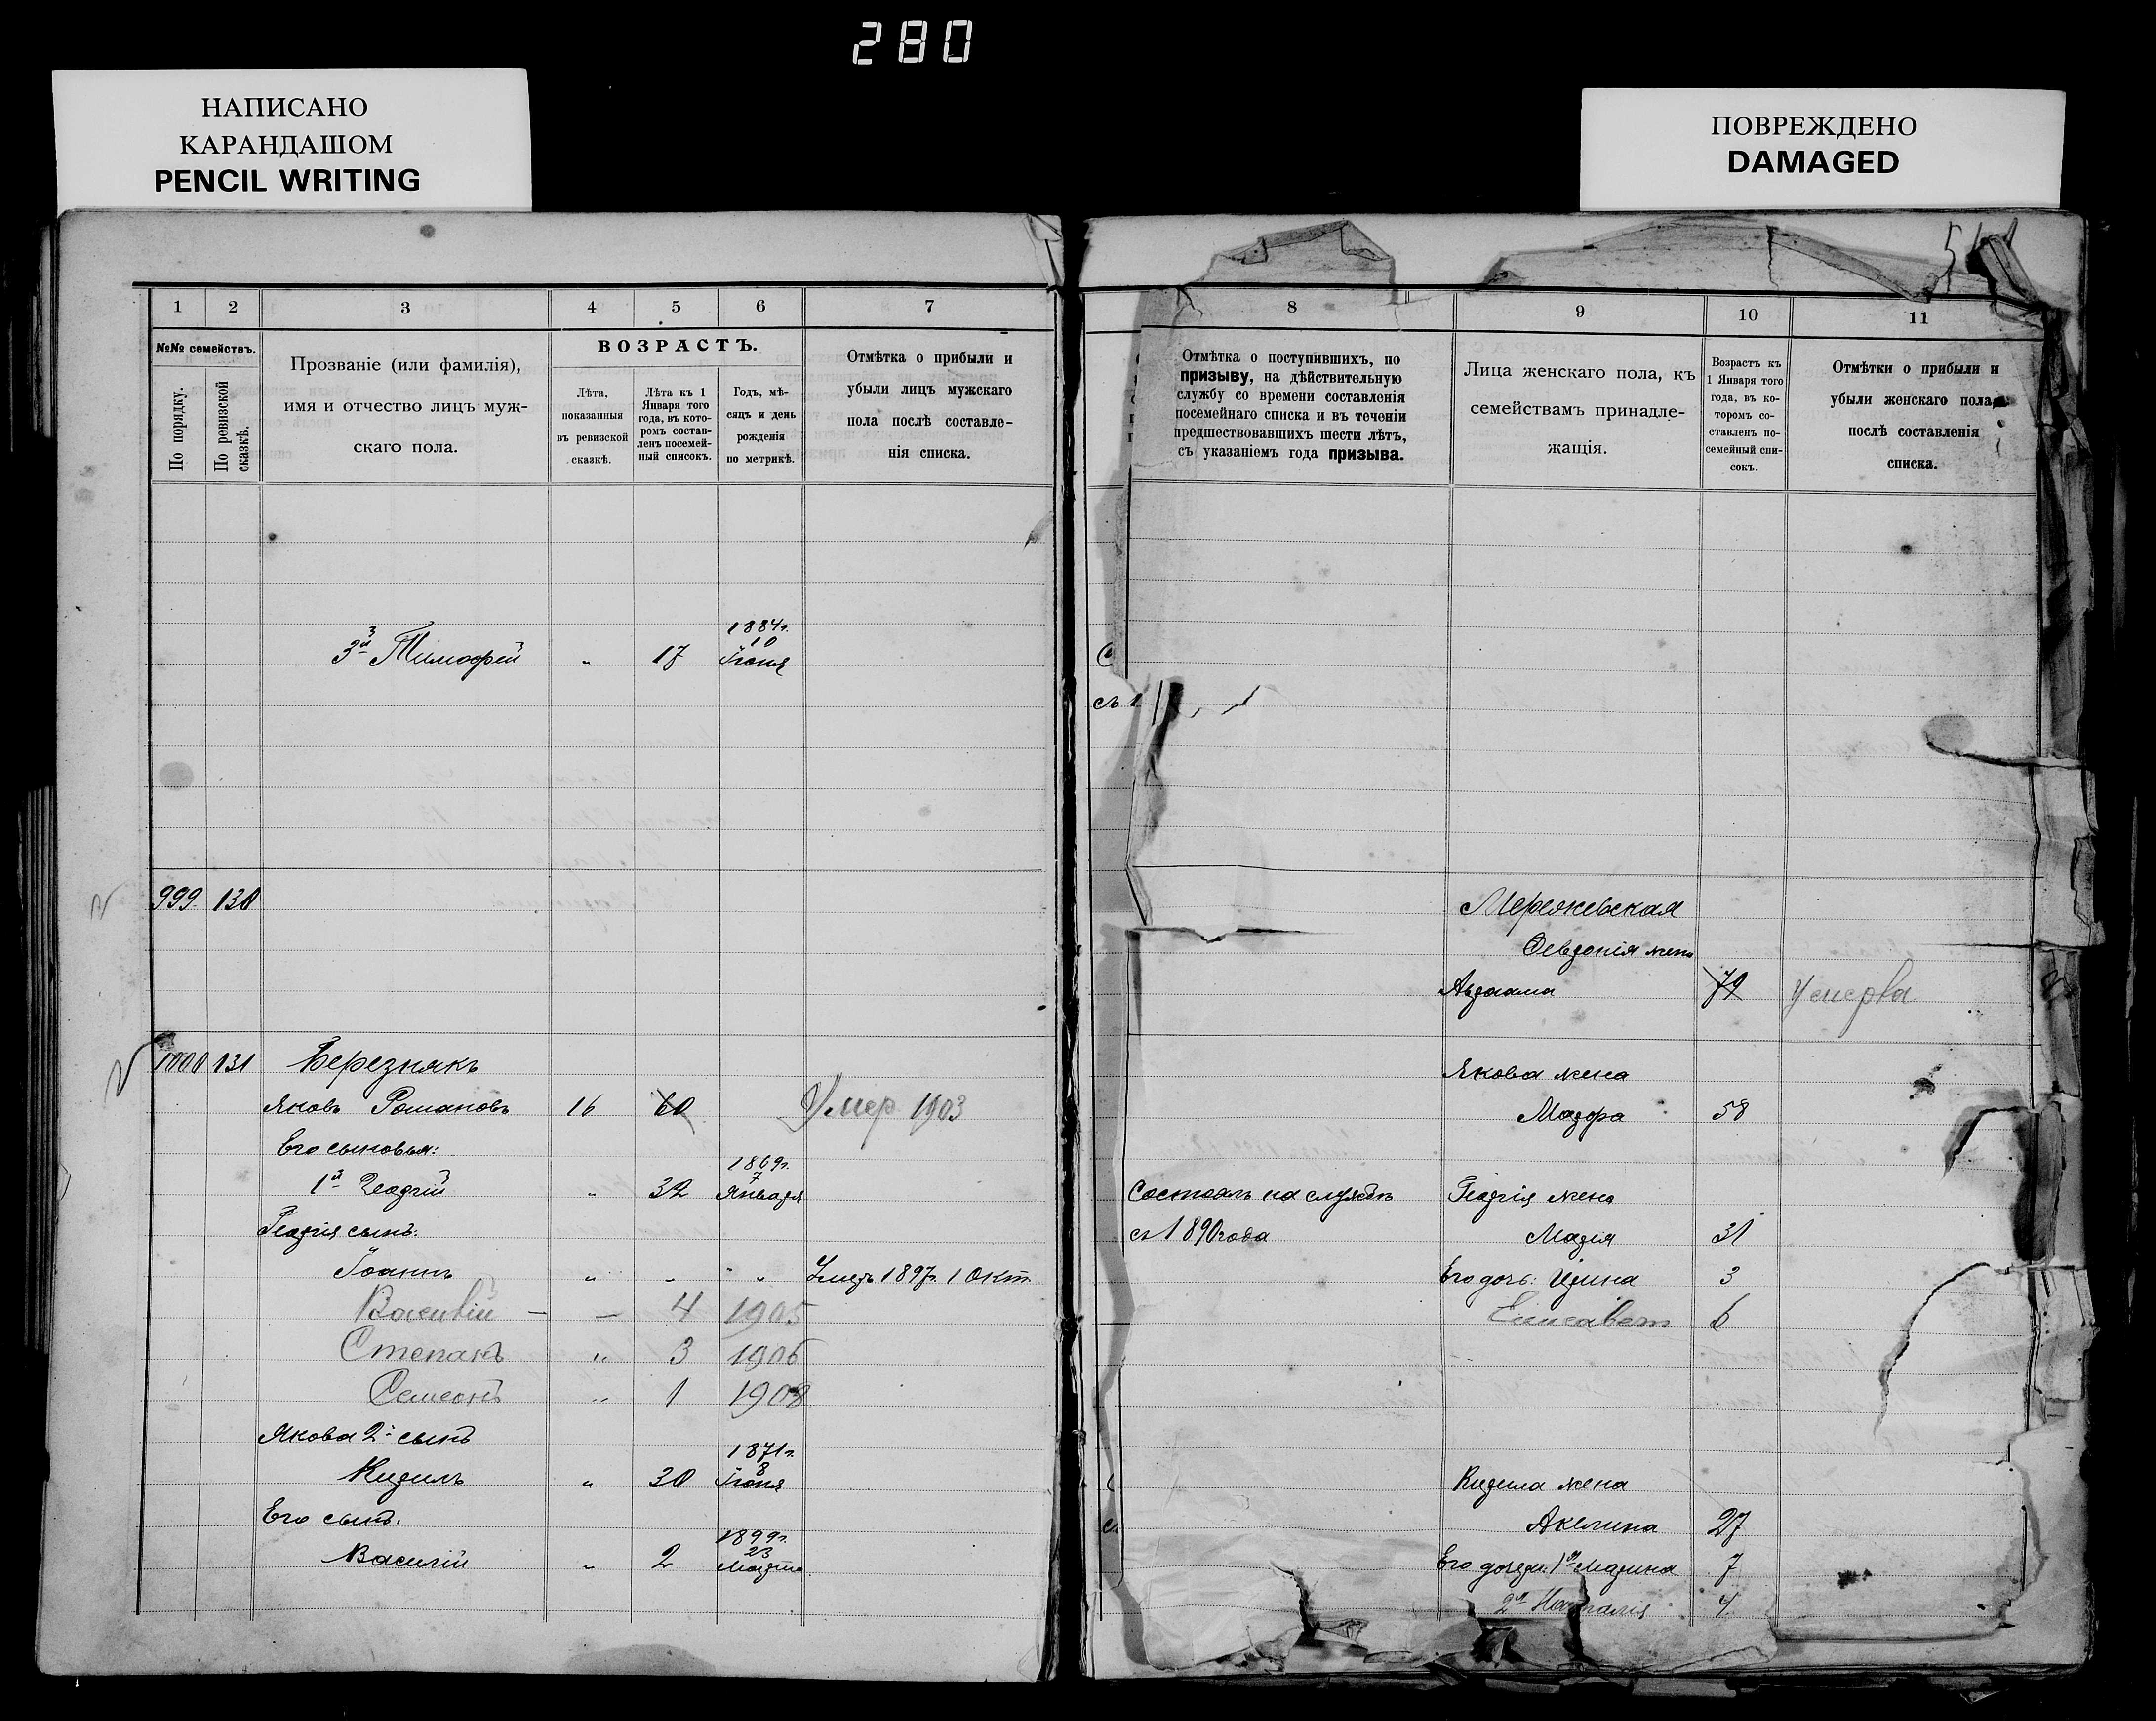 280
НАПИСАНО
КАРАНДАШОМ
PENCIL WRITING
ПОВРЕЖДЕНО
DAMAGED
1 2 3 4 5 6 7
№№ семействъ.
По порядку.
По ревизской сказкѣ.
Прозваніе (или фамилія),
имя и отчество лицъ муж-
скаго пола.
ВОЗРАСТЪ.
Лѣта,
показанныя
въ ревизской
сказкѣ.
Лѣта къ 1
Января того
года, въ кото-
ромъ состав-
ленъ посемей-
ный списокъ.
Годъ, мѣ-
сяцъ и день
рожденія
по метрикѣ.
Отмѣтка о прибыли и
убыли лицъ мужскаго
пола послѣ составле-
нія списка.
1884г.
10
3й Тимофей " 17 Іюня
999 130
1000 131 Березнякъ
Яковъ Романовъ 16 60 Умер 1903
Его сыновья:
1869г.
7
1й Георгій " 32 Января
Георгія сынъ:
Іоаннъ " " " " Умеръ 1897г. 1 Окт.
Василій — — 4 1905
Степанъ " 3 1906
Семенъ " 1 1908
Якова 2й сынъ
1871г.
8
Кирилъ " 30 Іюня
Его сынъ:
1899г.
23
Василій " 2 Марта
8 9 10 11
Отмѣтка о поступившихъ, по
призыву, на дѣйствительную
службу со времени составленія
посемейнаго списка и въ теченіи
предшествовавшихъ шести лѣтъ,
съ указаніемъ года призыва.
Лица женскаго пола, къ
семействамъ принадле-
жащія.
Возрастъ къ
1 Января того
года, въ ко-
торомъ со-
ставленъ по-
семейный спи-
сокъ.
Отмѣтки о прибыли и
убыли женскаго пола
послѣ составленія
списка.
съ 1
Мережевская
Февдонія жена
79 Умерла
Якова жена
Марфа 58
Состоялъ на службѣ Георгія жена
съ 1890 года Марія 31
Его дочь: Ирина 3
Елисавет 6
Кирила жена
Акилина 27
Его дочери: 1я Марина 7
2я Наталія 4